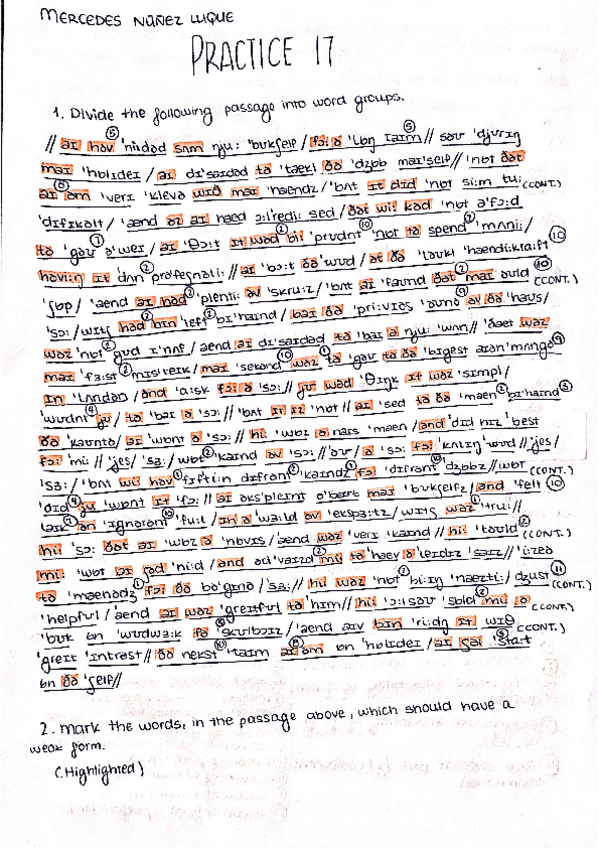 MERCEDES NÚÑEZ LUQUE
PRACTICE 17
1. Divide the following passage into word groups.
// aɪ həv 'niːdəd sʌm njuː 'bʊkʃelf / fɔː ə 'lɒŋ taɪm // səʊ 'djʊrɪŋ
maɪ 'hɒlɪdeɪ / aɪ dɪ'saɪdəd tə 'tækl ðə 'dʒɒb maɪ'self // 'nɒt ðət
aɪ əm 'verɪ 'klevə wɪð maɪ 'hændz / 'bʌt ɪt dɪd 'nɒt siːm tuː (CONT.)
'dɪfɪkəlt / 'ænd əz aɪ həəd ɔːl'rediː sed / ðət wiː kəd 'nɒt ə'fɔːd
tə 'gəʊ ə'weɪ / aɪ 'θɔːt ɪt wəd biː 'prʊdnt 'nɒt tə spend 'mʌniː /
həviːŋ ɪt 'dʌn prə'feʃnəliː // aɪ 'bɔːt ðə 'wʊd / ət ðə 'ləʊkl 'hændiːkrɑːft
'ʃɒp / 'ænd aɪ həd 'plentiː əv 'skruːz / 'bʌt aɪ 'faʊnd ðət maɪ əʊld (CONT.)
'sɔː / wɪtʃ həd bɪn 'left bɪ'haɪnd / baɪ ðə 'priːvɪəs 'əʊnə əv ðə 'haʊs /
wəz 'nɒt gʊd ɪ'nʌf / ænd aɪ dɪ'saɪdəd tə 'baɪ ə njuː 'wʌn // 'ðæt wəz
maɪ 'fɜːst mɪs'teɪk / maɪ 'sekənd wəz tə 'gəʊ tə ðə 'bɪgest aɪən'mʌŋgə
ɪn 'lʌndən / ənd 'ɑːsk fɔː ə 'sɔː // jʊ wəd 'θɪŋk ɪt wəz 'sɪmpl /
'wʊdnt jʊ / tə 'baɪ ə 'sɔː // 'bʌt ɪt ɪz 'nɒt // aɪ 'sed tə ðə 'mæn bɪ'haɪnd
ðə 'kaʊntə / aɪ 'wɒnt ə 'sɔː // hiː 'wɒz ə naɪs mæn / ənd 'dɪd hɪz 'best
fɔː 'miː // 'jes / 'sɜː / wɒt 'kaɪnd əv 'sɔː // 'əʊ / ə 'sɔː fə 'kʌtɪŋ 'wʊd // 'jes /
'sɜː / 'bʌt wiː həv fɪftiːn dɪfrənt 'kaɪndz fə 'dɪfrənt 'dʒɒbz // wɒt (CONT.)
'dɪd jʊ 'wɒnt ɪt 'fɔː // aɪ əks'pleɪnt ə'baʊt maɪ 'bʊkʃelfz / ənd 'felt
laɪk ən 'ɪgnərənt 'fuːl / ɪn ə 'wɜːld əv 'ekspɜːtz / wɪtʃ wəz 'truː //
hiː 'sɔː ðət aɪ 'wɒz ə 'nɒvɪs / 'ænd wəz 'verɪ 'kaɪnd // hiː 'təʊld (CONT.)
miː 'wɒt aɪ ʃəd 'niːd / ənd əd'vaɪzd mɪ tə 'hæv ə 'leɪdɪz 'saɪz // 'iːzeə
tə 'mænədʒ fɔː ðə bə'gɪnə / 'sɜː // hiː wəz 'nɒt biːɪŋ 'næztiː / dʒʌst (CONT.)
'helpful / 'ænd aɪ wəz 'greɪtfʊl tə 'hɪm // hiː 'ɔːlsəʊ 'səʊld mɪ ə (CONT.)
'bʊk ɒn 'wʊdwɜːk fə 'skʊlbɔɪz / 'ænd aɪv bɪn 'riːdŋ ɪt wɪθ (CONT.)
'greɪt 'ɪntrəst // ðə nekst 'taɪm aɪ əm ɒn 'hɒlɪdeɪ / aɪ ʃəl start
ɒn ðə 'ʃelf //
2. Mark the words, in the passage above, which should have a
weak form.
(Highlighted)